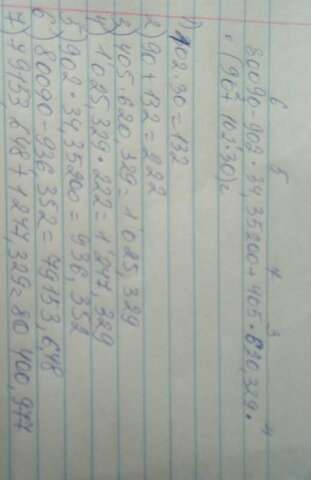 6 5 4 3 4
80090-902·34,35200+405·620,329·
·(90+102·30)=
1) 102·30=132
2) 90+132=222
3) 405·620,329=1025,329
4) 1025329·222=1247,329
5) 902·34,35200=936,352
6) 80090-936,352=79153,648
7) 79153,648+1247,329=80 400,977